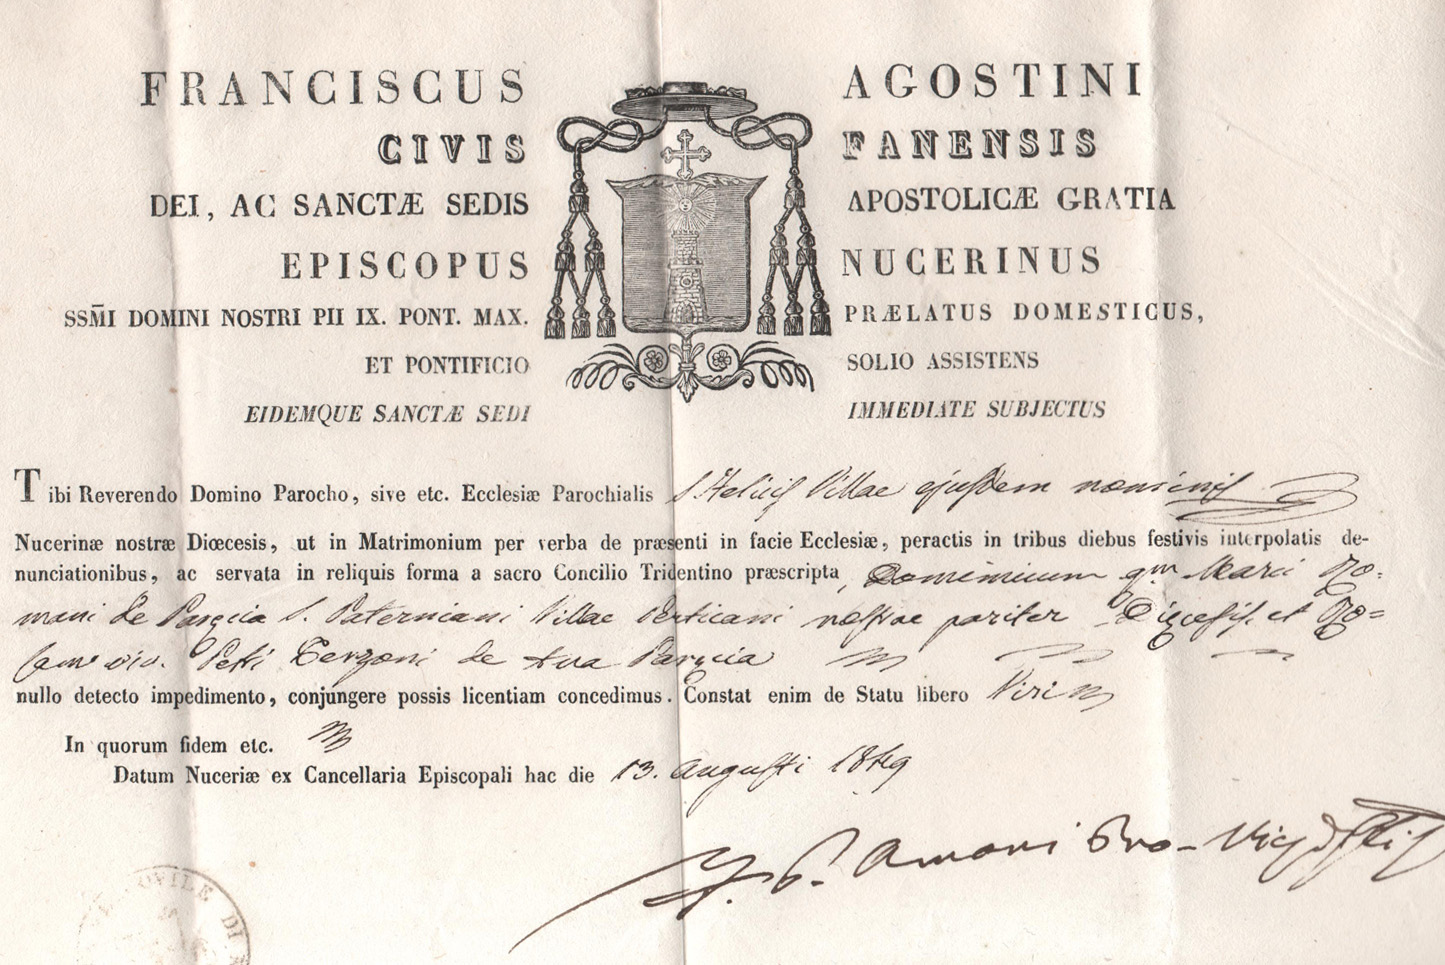 FRANCISCUS AGOSTINI
CIVIS FANENSIS
DEI, AC SANCTÆ SEDIS APOSTOLICÆ GRATIA
EPISCOPUS NUCERINUS
SSM̃I DOMINI NOSTRI PII IX. PONT. MAX. PRÆLATUS DOMESTICUS,
ET PONTIFICIO SOLIO ASSISTENS
EIDEMQUE SANCTÆ SEDI IMMEDIATE SUBJECTUS
Tibi Reverendo Domino Parocho, sive etc. Ecclesiæ Parochialis S. Felicis Villae ejusdem nominis
Nucerinæ nostræ Diœcesis, ut in Matrimonium per verba de præsenti in facie Ecclesiæ, peractis in tribus diebus festivis interpolatis de-
nunciationibus, ac servata in reliquis forma a sacro Concilio Tridentino præscripta, Dominicum qm Marci Ro=
mani de Parœcia S. Paterniani Villae Verticani nostrae pariter Diœcesis, et Ro=
sam Petri Terzoni de tua Parœcia
nullo detecto impedimento, conjungere possis licentiam concedimus. Constat enim de Statu libero Viri
In quorum fidem etc.
Datum Nuceriæ ex Cancellaria Episcopali hac die 13. Augusti 1849
P. Amoni Pro-
OVILE DI